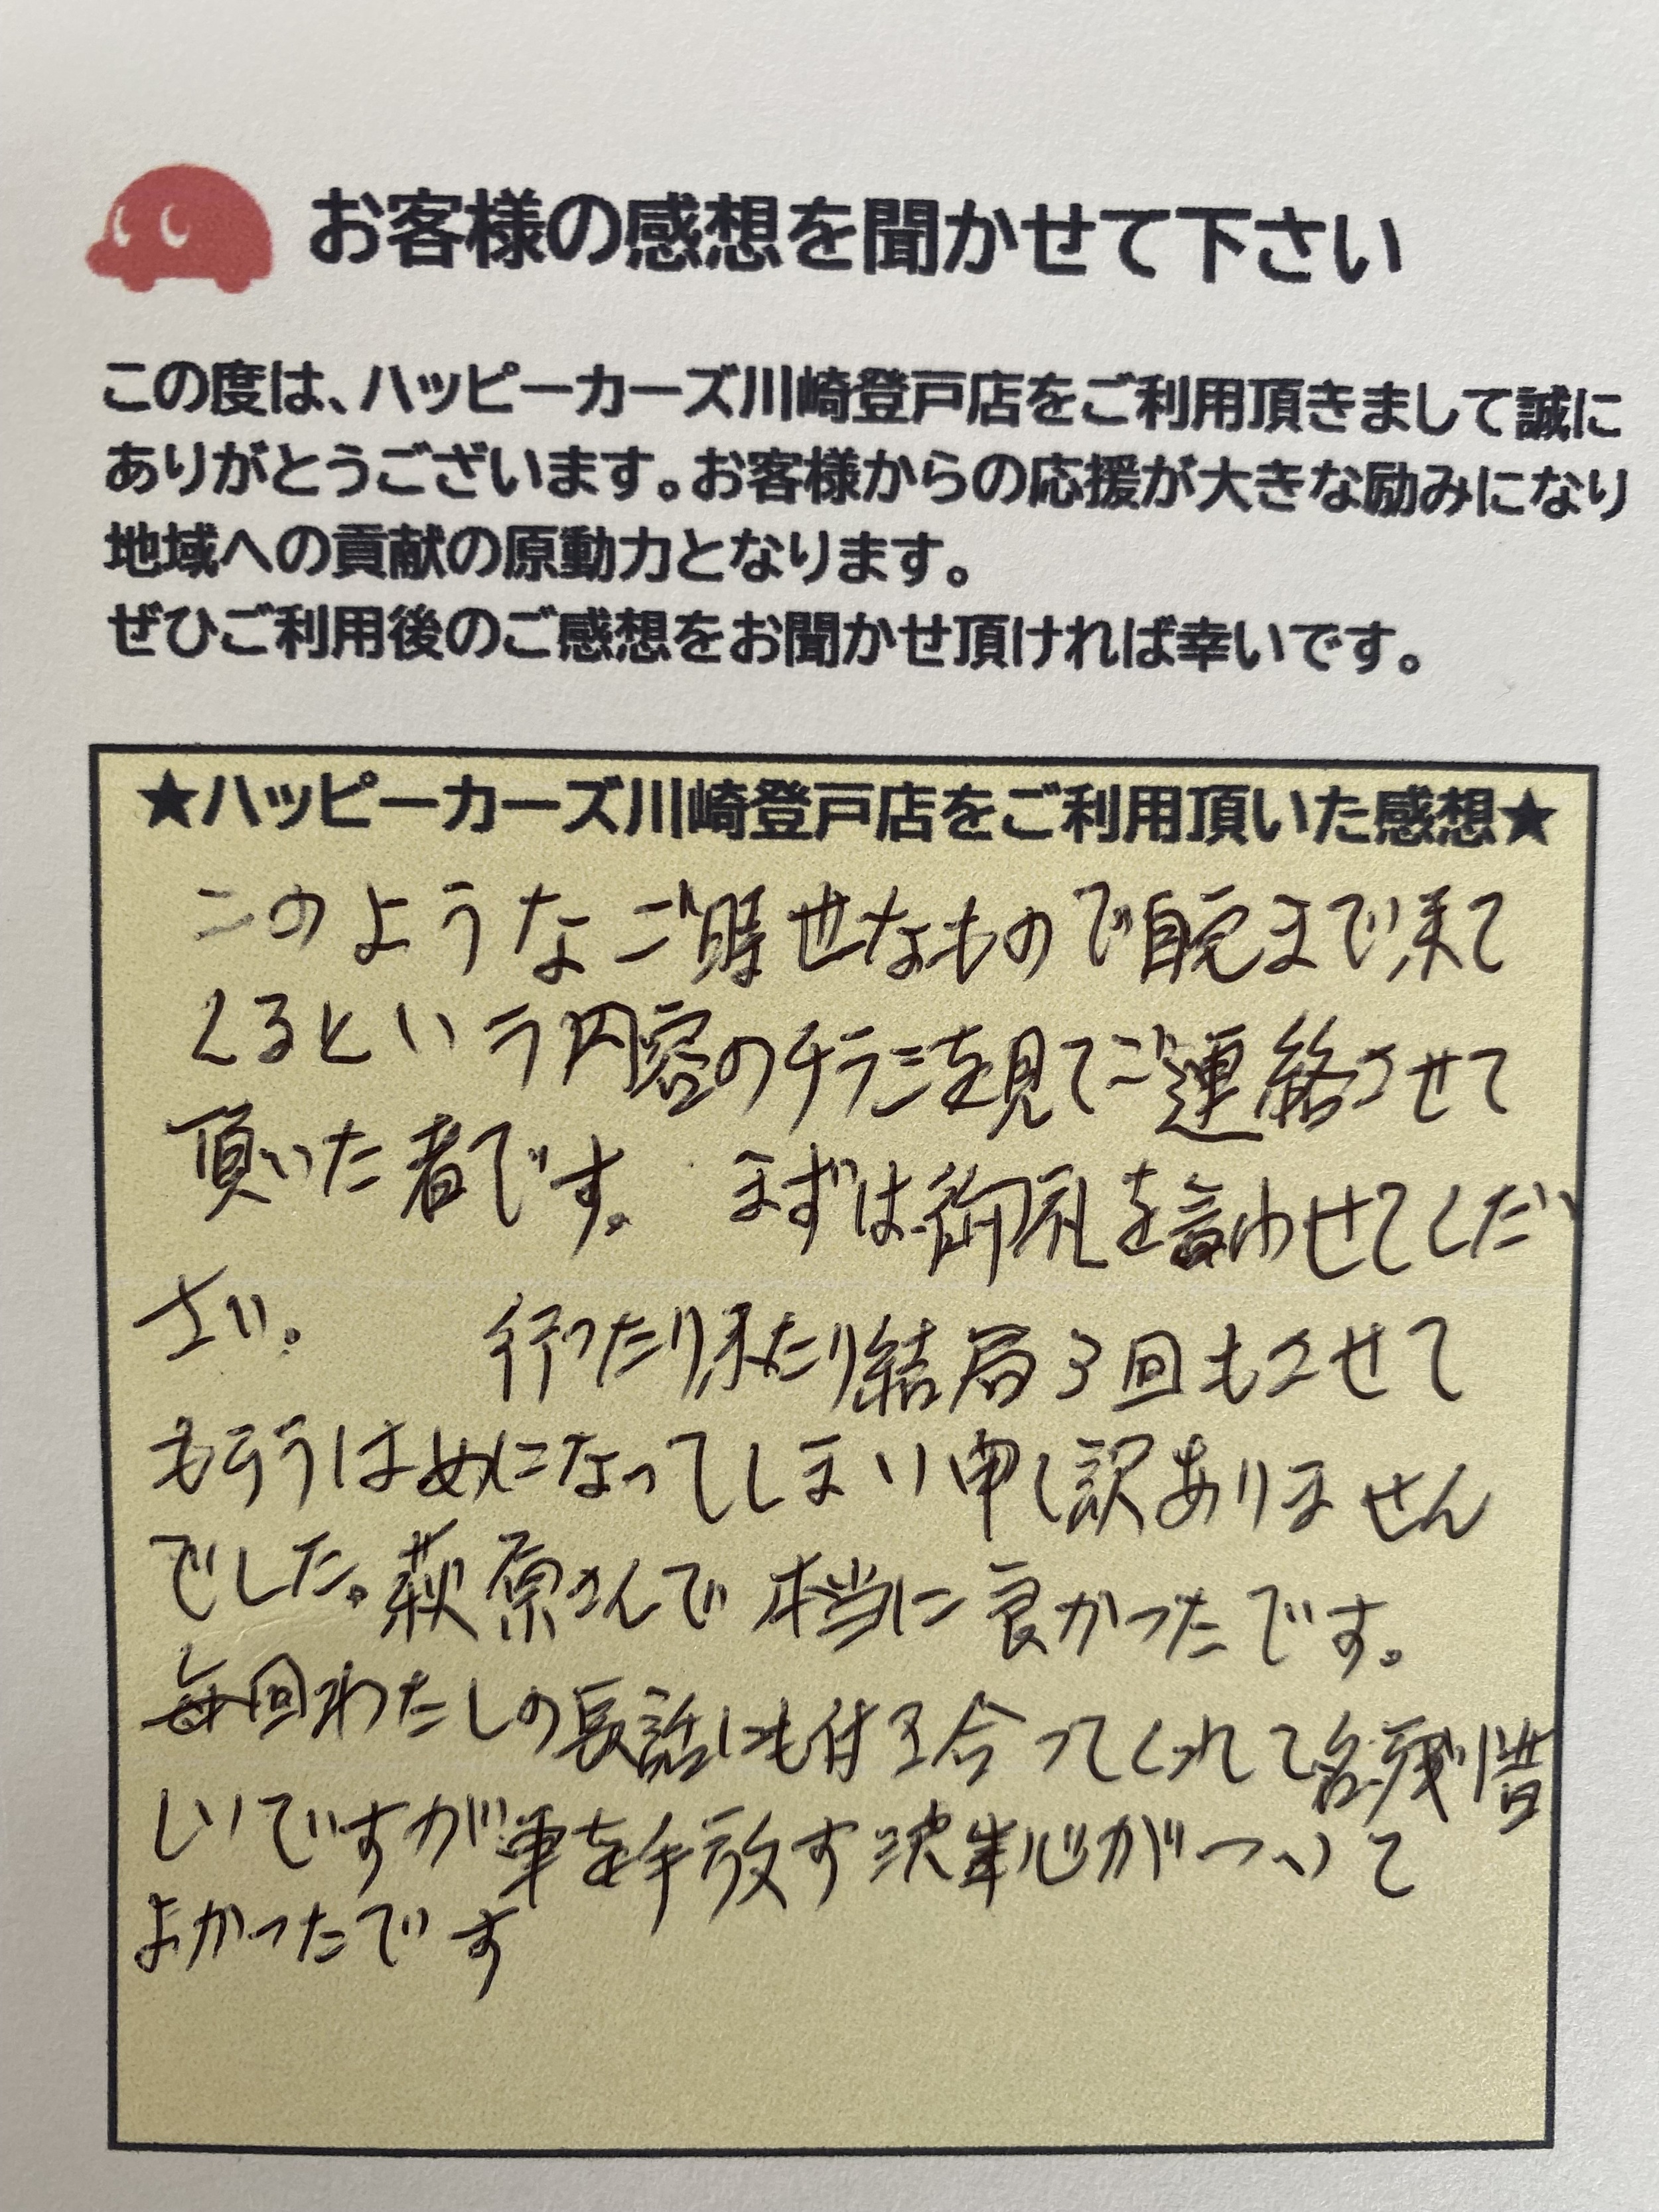 お客様の感想を聞かせて下さい
この度は、ハッピーカーズ川崎登戸店をご利用頂きまして誠に
ありがとうございます。お客様からの応援が大きな励みになり
地域への貢献の原動力となります。
ぜひご利用後のご感想をお聞かせ頂ければ幸いです。
★ハッピーカーズ川崎登戸店をご利用頂いた感想★
このようなご時世なもので自宅まで来て
くるという内容のチラシを見てご連絡させて
頂いた者です。まずは御礼を言わせてくだ
さい。 行ったり来たり結局3回もさせて
もらうはめになってしまい申し訳ありません
でした。萩原さんで本当に良かったです。
毎回わたしの長話にも付き合ってくれて名残惜
しいですが車を手放す決心がついて
よかったです